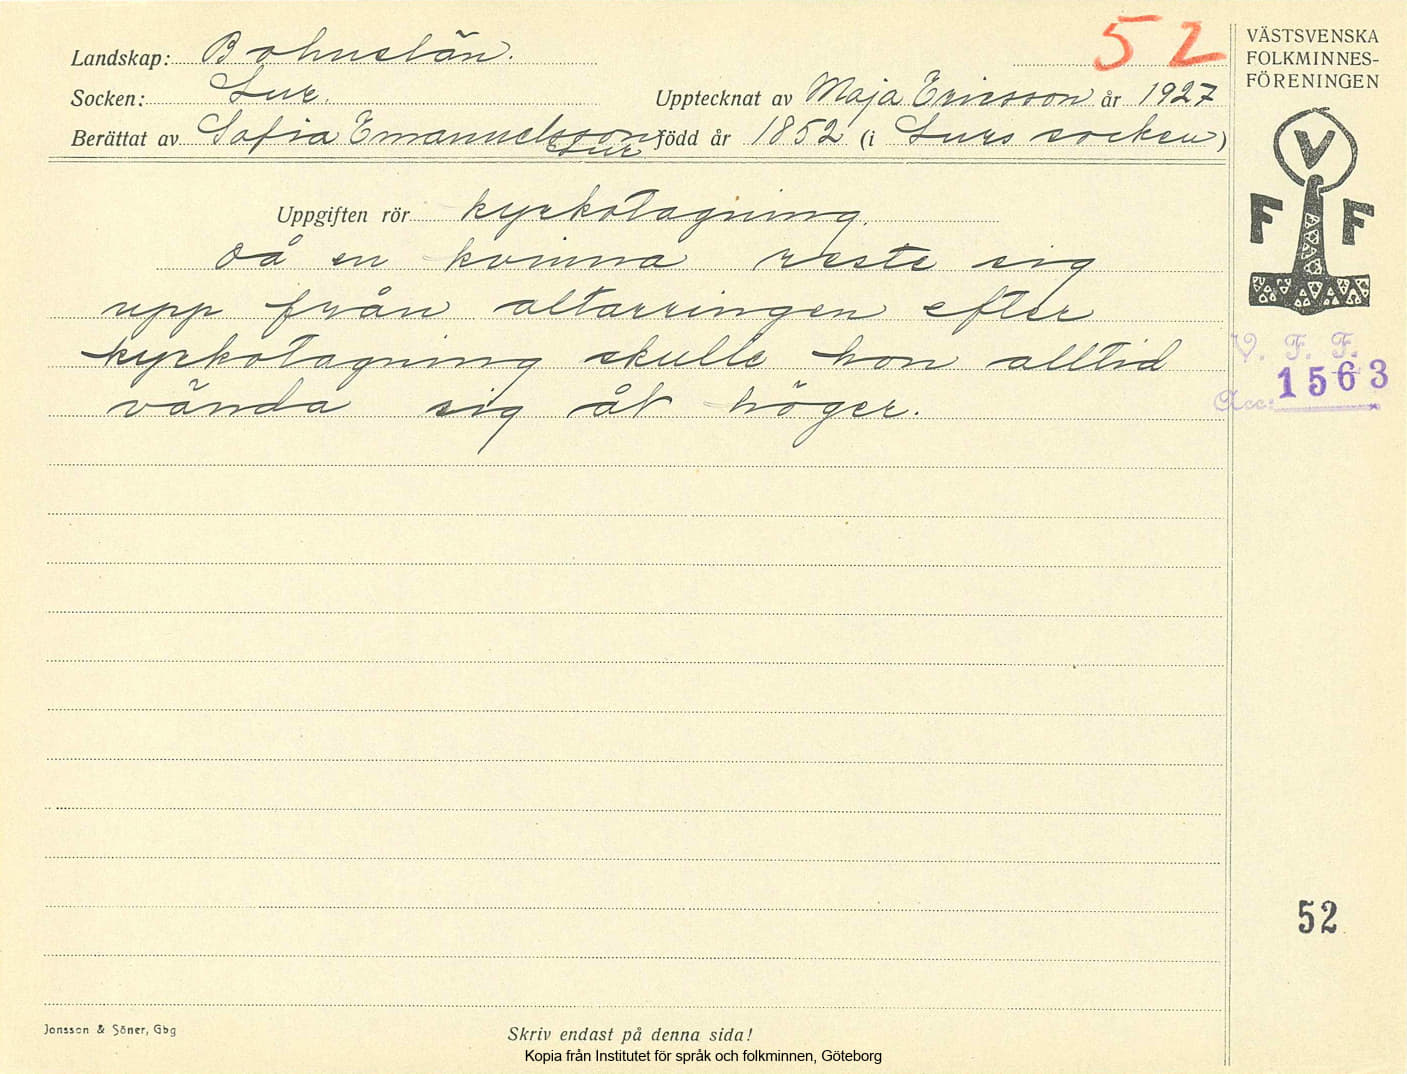 52
Landskap: Bohuslän.
Socken: Lur.
Upptecknat av Maja Ericsson år 1927
Berättat av Sofia Emanuelsson född år 1852 (i Lurs socken)
Lur
Uppgiften rör kyrkotagning.
Då en kvinna reste sig
upp från altarringen efter
kyrkotagning skulle hon alltid
vända sig åt höger.
VÄSTSVENSKA
FOLKMINNES-
FÖRENINGEN
V
F F
V. F. F.
Acc: 1563
52
Jonsson & Söner, Gbg
Skriv endast på denna sida!
Kopia från Institutet för språk och folkminnen, Göteborg